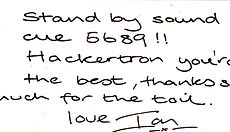 Stand by sound
cue 5689!!
Hackertron you're
the best, thanks s
much for the toil.
love Ian
x